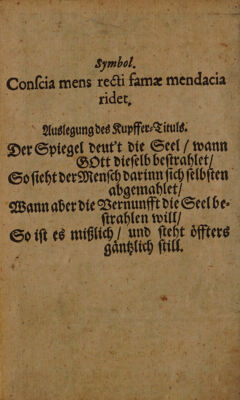 Symbol.
Conscia mens recti famæ mendacia
ridet.
Auslegung des Kupffer-Tituls.
Der Spiegel deut't die Seel / wann
GOtt dieselb bestrahlet /
So sieht der Mensch darinn sich selbsten
abgemahlet /
Wann aber die Vernunfft die Seel be-
strahlen will /
So ist es mißlich / und steht öffters
gäntzlich still.